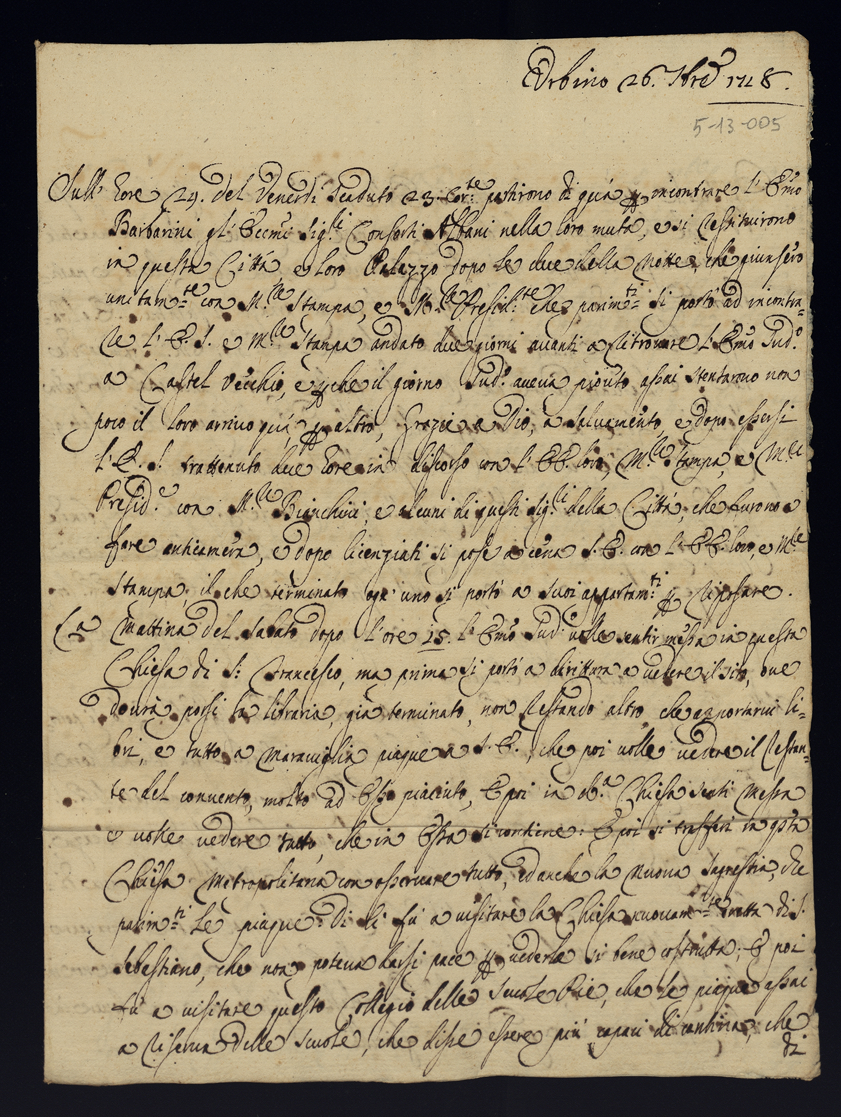 Urbino 26. 7bre 1718.
5-13-005
Sull' hore 24. del Venerdì scaduto 23. Corte. partirono di quà incontrare l'Emo
Barbarini gl' Eccmi Sigri. Consorti Albani nella loro muta, e si restituirono
in questa Città e loro Palazzo dopo le due della notte, che giunsero
unitamte. con M.re Stampa, e M.re Presidte. che parimti. si portò ad incontra-
re l'E. S. e M.re Stampa andato due giorni avanti a ritrovare l'Emo Sudo.
a Castel Vecchio, e che il giorno Sudo. aveva piovuto assai stentarono non
poco il loro arrivo quà, altro, Grazie a Dio, a salvamento, e dopo essersi
l'E. S. trattenuto due hore in discorso con l'EE. loro, M.re Stampa, e M.re
Preside. con M.re Bianchini, e alcuni di questi Sigri. della Città, che furono a
fare anticamera, e dopo licenziati si pose a cena S. E. con l'EE. loro, e M.re
Stampa il che terminato ogn' uno si portò a suoi appartamti. riposare.
La Mattina del Sabato dopo l'ore 15. l'Emo Sudo. volle sentir messa in questa
Chiesa di S. Francesco, ma prima si portò a dirittura a vedere il sito, ove
dovrà porsi la libraria, già terminato, non restando altro che apportarvi li-
bri, e tutto a maraviglia piaque a S. E., che poi volle vedere il restan-
te del convento, molto ad Esso piaciuto, e poi in da. Chiesa sentì messa
e volle vedere tutto, che in Essa si contiene: e poi si trasferì in qsta
Chiesa Metropolitana con osservare tutto, ed anche la nuova Sagrestia, che
parimti. le piaque: Di lì fù a visitare la Chiesa nuovamte. eretta di S.
Sebastiano, che non poteva darsi pace vederla si bene costrutta; E poi
fù a visitare questo Collegio delle Scuole Pie, che le piaque assai
a riserva delle Scuole, che disse essere più capaci di cantina, che
di